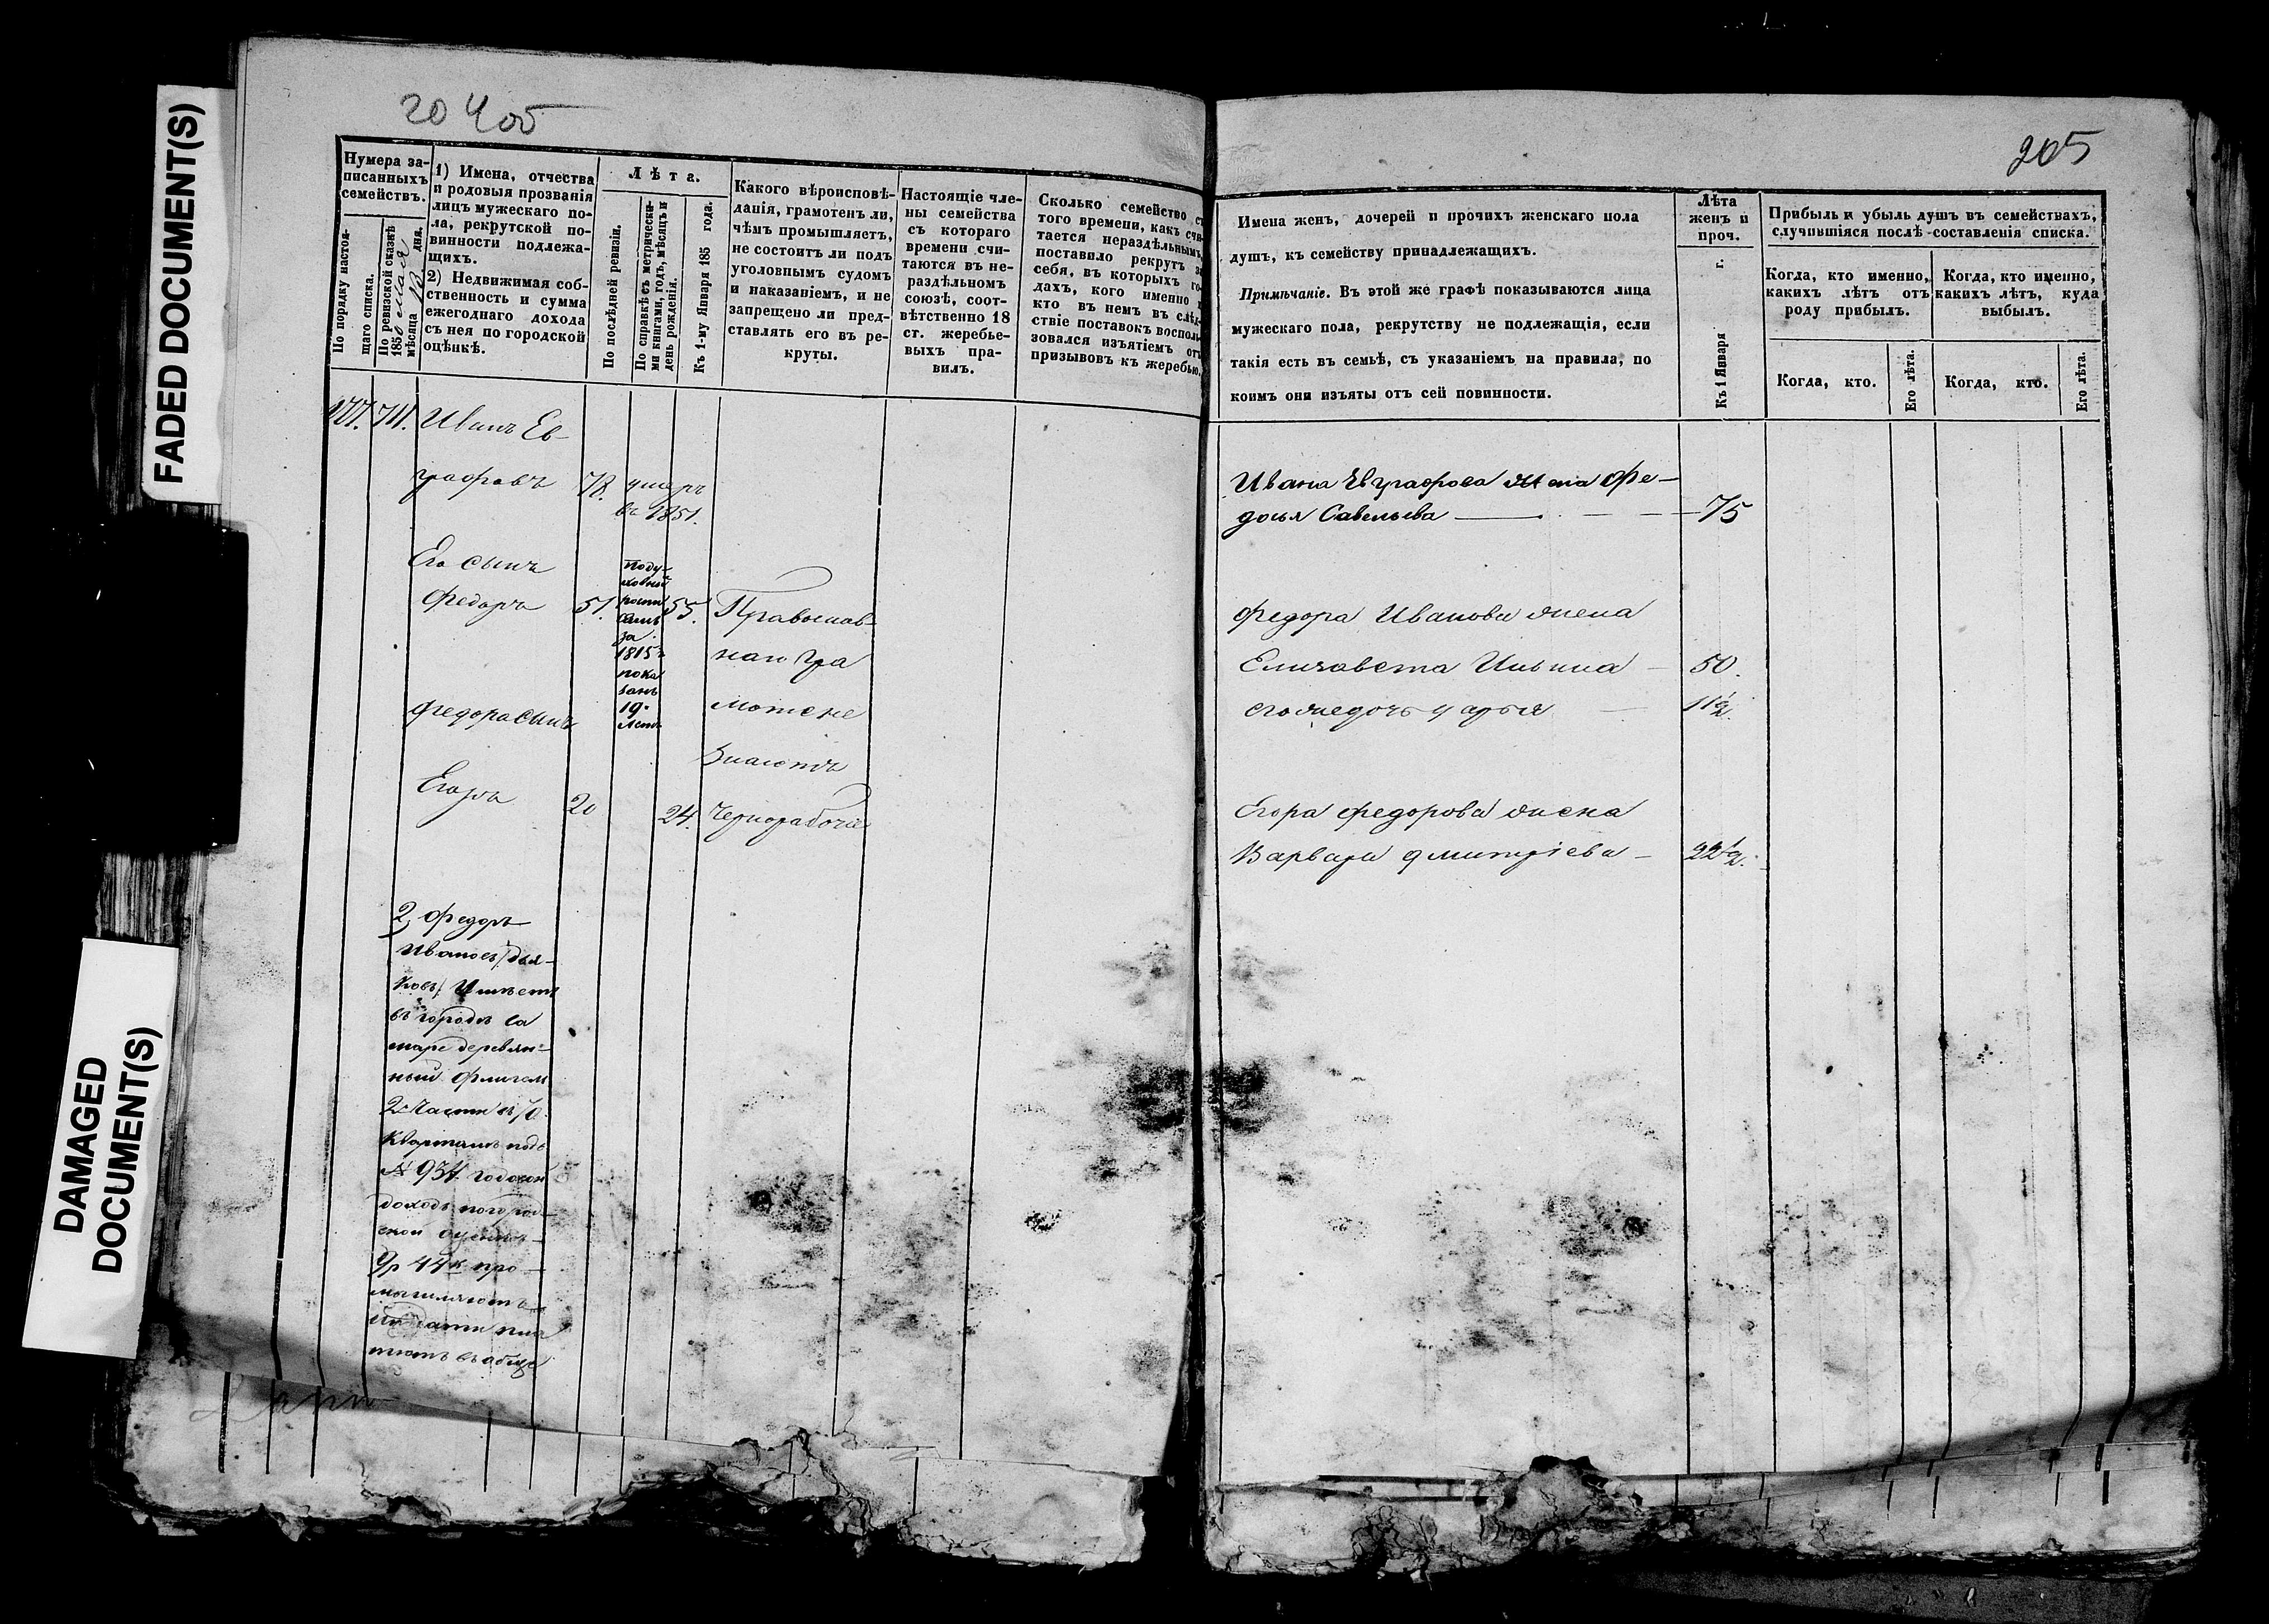 FADED DOCUMENT(S)
DAMAGED
DOCUMENT(S)
204 об
Нумера за-
писанныхъ
семействъ.
По порядку настоя-
щаго списка.
По ревизской сказкѣ
1850 мая
мѣсяца 13 дня.
1) Имена, отчества
и родовыя прозванія
лицъ мужескаго по-
ла, рекрутской по-
винности подлежа-
щихъ.
2) Недвижимая соб-
ственность и сумма
ежегоднаго дохода
съ нея по городской
оцѣнкѣ.
Лѣта.
По послѣдней ревизіи.
По справкѣ съ метрически-
ми книгами, годъ, мѣсяцъ и
день рожденія.
Къ 1-му Января 185 года.
Какого вѣроисповѣ-
данія, грамотенъ ли,
чѣмъ промышляетъ,
не состоитъ ли подъ
уголовнымъ судомъ
и наказаніемъ, и не
запрещено ли пред-
ставлять его въ ре-
круты.
Настоящіе чле-
ны семейства
съ котораго
времени счи-
таются въ не-
раздѣльномъ
союзѣ, соот-
вѣтственно 18
ст. жеребье-
выхъ пра-
вилъ.
Сколько семейство съ
того времени, какъ счи-
тается нераздѣльнымъ,
поставило рекрутъ за
себя, въ которыхъ го-
дахъ, кого именно и
кто въ немъ въ слѣд-
ствіе поставокъ восполь-
зовался изъятіемъ отъ
призывовъ къ жеребью.
177. 711. Иванъ Ев-
графовъ 78. умеръ
въ 1851.
Его сынъ
Федоръ 51. 55. Православ-
поду-
ховной
роспи
за
1815
пока
занъ
19
лѣтъ
наго гра
моте не
знаютъ
Чернорабочіе
Федора сынъ
Егоръ 20 24.
2) Федоръ
Ивановъ
Имѣетъ
въ городѣ Са
марѣ деревян-
ный флигель
2 части въ
кварталѣ подъ
№ 934 годовой
доходъ по город-
ской оцѣнкѣ
9 р 44 к про-
мышляютъ
въ обще
205
Имена женъ, дочерей и прочихъ женскаго пола
душъ, къ семейству принадлежащихъ.
Примѣчаніе. Въ этой же графѣ показываются лица
мужескаго пола, рекрутству не подлежащія, если
такія есть въ семьѣ, съ указаніемъ на правила, по
коимъ они изъяты отъ сей повинности.
Лѣта
женъ и
проч.
Къ 1 Января г.
Прибыль и убыль душъ въ семействахъ,
случившіяся послѣ составленія списка.
Когда, кто именно,
каких лѣтъ отъ
роду прибылъ.
Когда, кто именно,
каких лѣтъ, куда
выбылъ.
Когда, кто.
Его лѣта.
Когда, кто.
Его лѣта.
Ивана Евграфова жена Фе-
досья Савельева — 75
Федора Иванова жена
Елизавета Ильина — 50.
его же дочь Дарья — 11½.
Егора Федорова жена
Варвара Дмитріева — 22½.